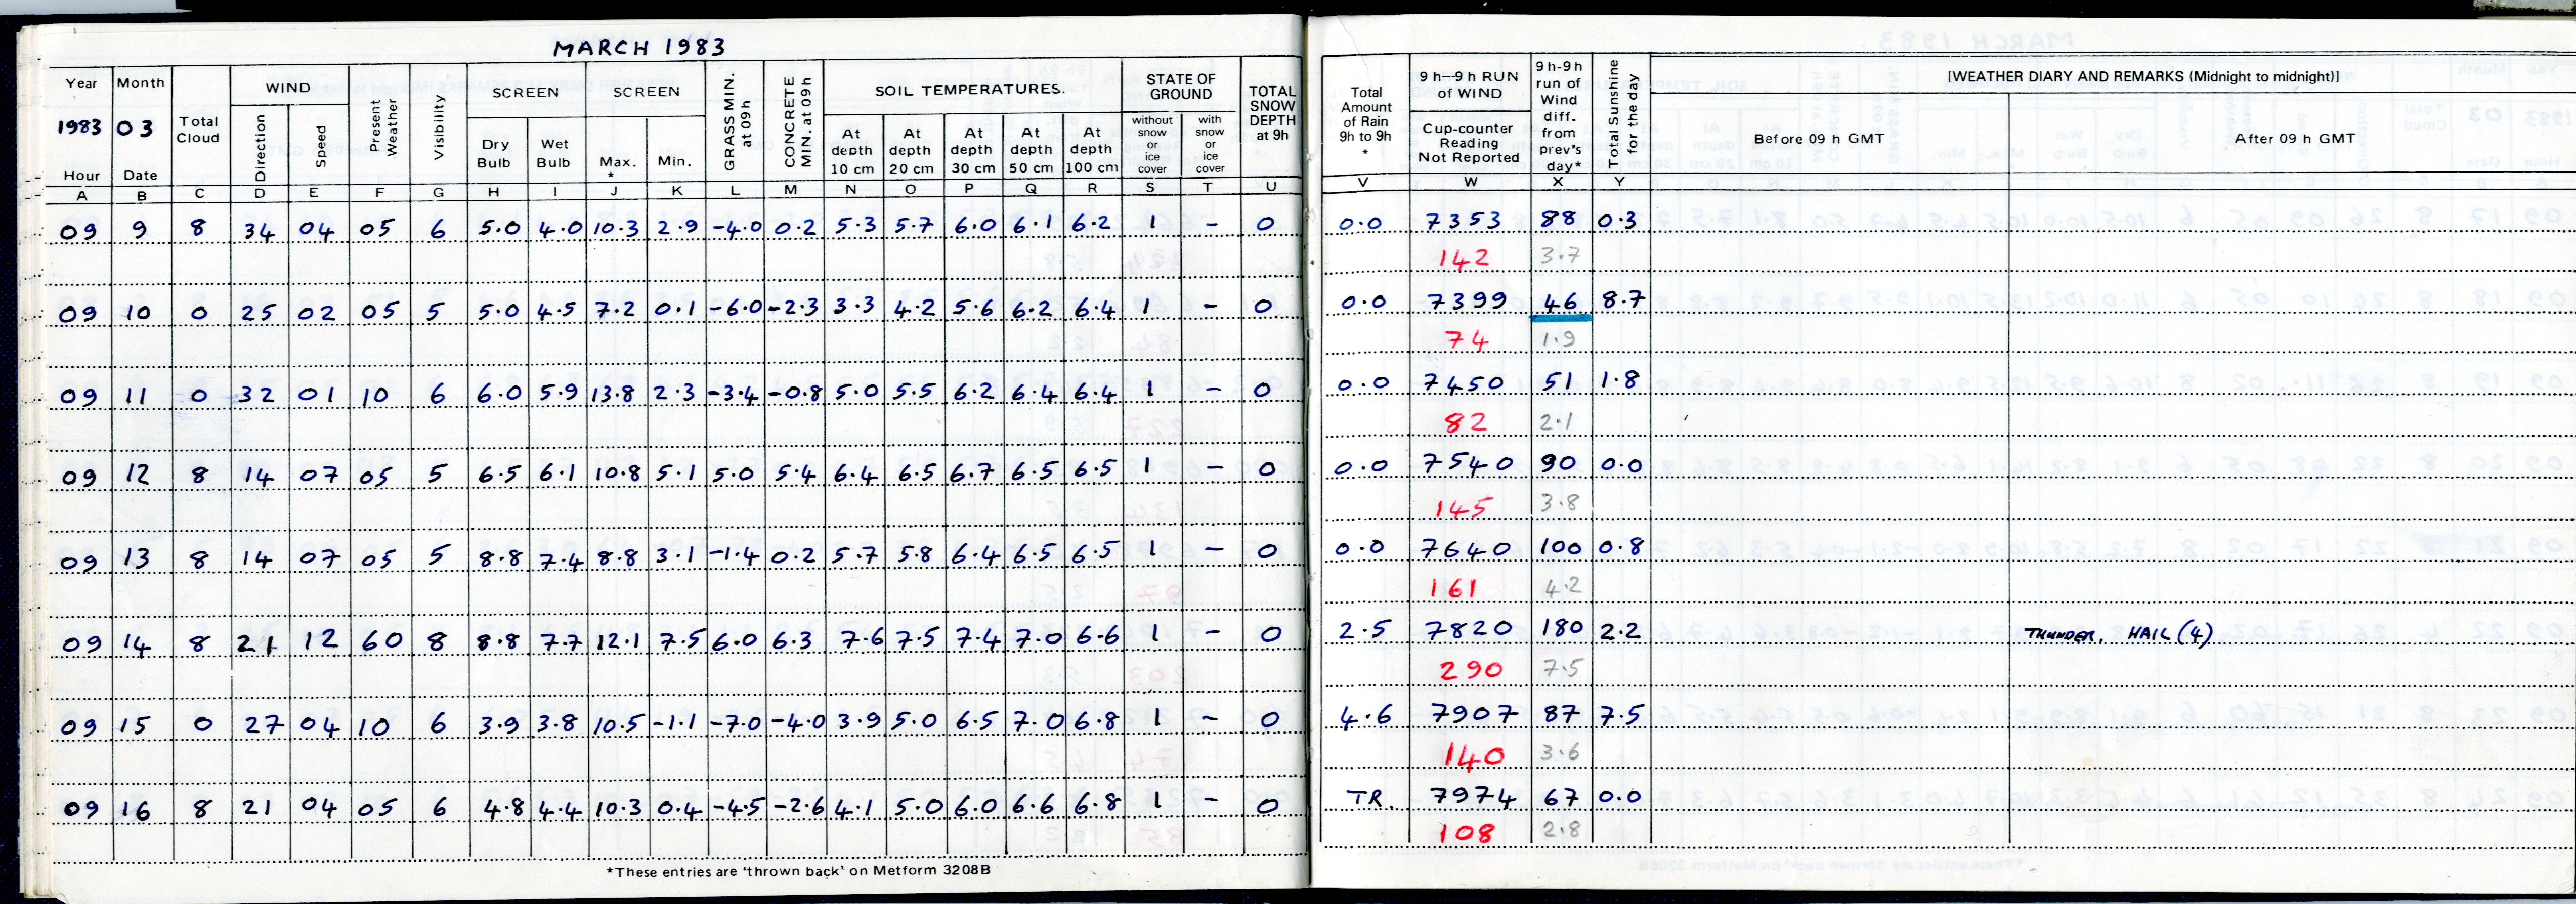 MARCH 1983
Year Month Total Cloud WIND Present Weather Visibility SCREEN SCREEN GRASS MIN. at 09h CONCRETE MIN. at 09h SOIL TEMPERATURES. STATE OF GROUND TOTAL SNOW DEPTH at 9h Total Amount of Rain 9h to 9h * 9 h–9 h RUN of WIND 9 h-9 h run of Wind diff. from prev's day* Total Sunshine for the day [WEATHER DIARY AND REMARKS (Midnight to midnight)]
1983 03 Direction Speed Dry Bulb Wet Bulb Max. * Min. At depth 10 cm At depth 20 cm At depth 30 cm At depth 50 cm At depth 100 cm without snow or ice cover with snow or ice cover Cup-counter Reading Not Reported Before 09 h GMT After 09 h GMT
Hour Date
A B C D E F G H I J K L M N O P Q R S T U V W X Y
09 9 8 34 04 05 6 5.0 4.0 10.3 2.9 -4.0 0.2 5.3 5.7 6.0 6.1 6.2 1 - 0 0.0 7353 88 0.3
142 3.7
09 10 0 25 02 05 5 5.0 4.5 7.2 0.1 -6.0 -2.3 3.3 4.2 5.6 6.2 6.4 1 - 0 0.0 7399 46 8.7
74 1.9
09 11 0 32 01 10 6 6.0 5.9 13.8 2.3 -3.4 -0.8 5.0 5.5 6.2 6.4 6.4 1 - 0 0.0 7450 51 1.8
82 2.1
09 12 8 14 07 05 5 6.5 6.1 10.8 5.1 5.0 5.4 6.4 6.5 6.7 6.5 6.5 1 - 0 0.0 7540 90 0.0
145 3.8
09 13 8 14 07 05 5 8.8 7.4 8.8 3.1 -1.4 0.2 5.7 5.8 6.4 6.5 6.5 1 - 0 0.0 7640 100 0.8
161 4.2
09 14 8 21 12 60 8 8.8 7.7 12.1 7.5 6.0 6.3 7.6 7.5 7.4 7.0 6.6 1 - 0 2.5 7820 180 2.2 THUNDER. HAIL (4)
290 7.5
09 15 0 27 04 10 6 3.9 3.8 10.5 -1.1 -7.0 -4.0 3.9 5.0 6.5 7.0 6.8 1 - 0 4.6 7907 87 7.5
140 3.6
09 16 8 21 04 05 6 4.8 4.4 10.3 0.4 -4.5 -2.6 4.1 5.0 6.0 6.6 6.8 1 - 0 TR. 7974 67 0.0
108 2.8
*These entries are 'thrown back' on Metform 3208B